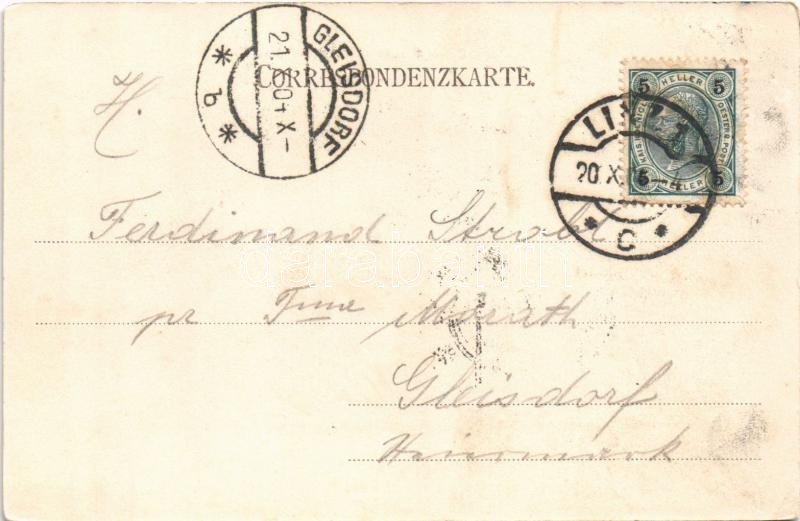 GLEISDORF
21. X. 04 X-
* b *
CORRESPONDENZKARTE.
5 HELLER 5
KAIS. KÖNIGL. OESTERR. POST
5 HELLER 5
LINZ 1
20. X.
* C *
H.
Ferdinand Strobl
pr Fme Morath
Gleisdorf
Steiermark